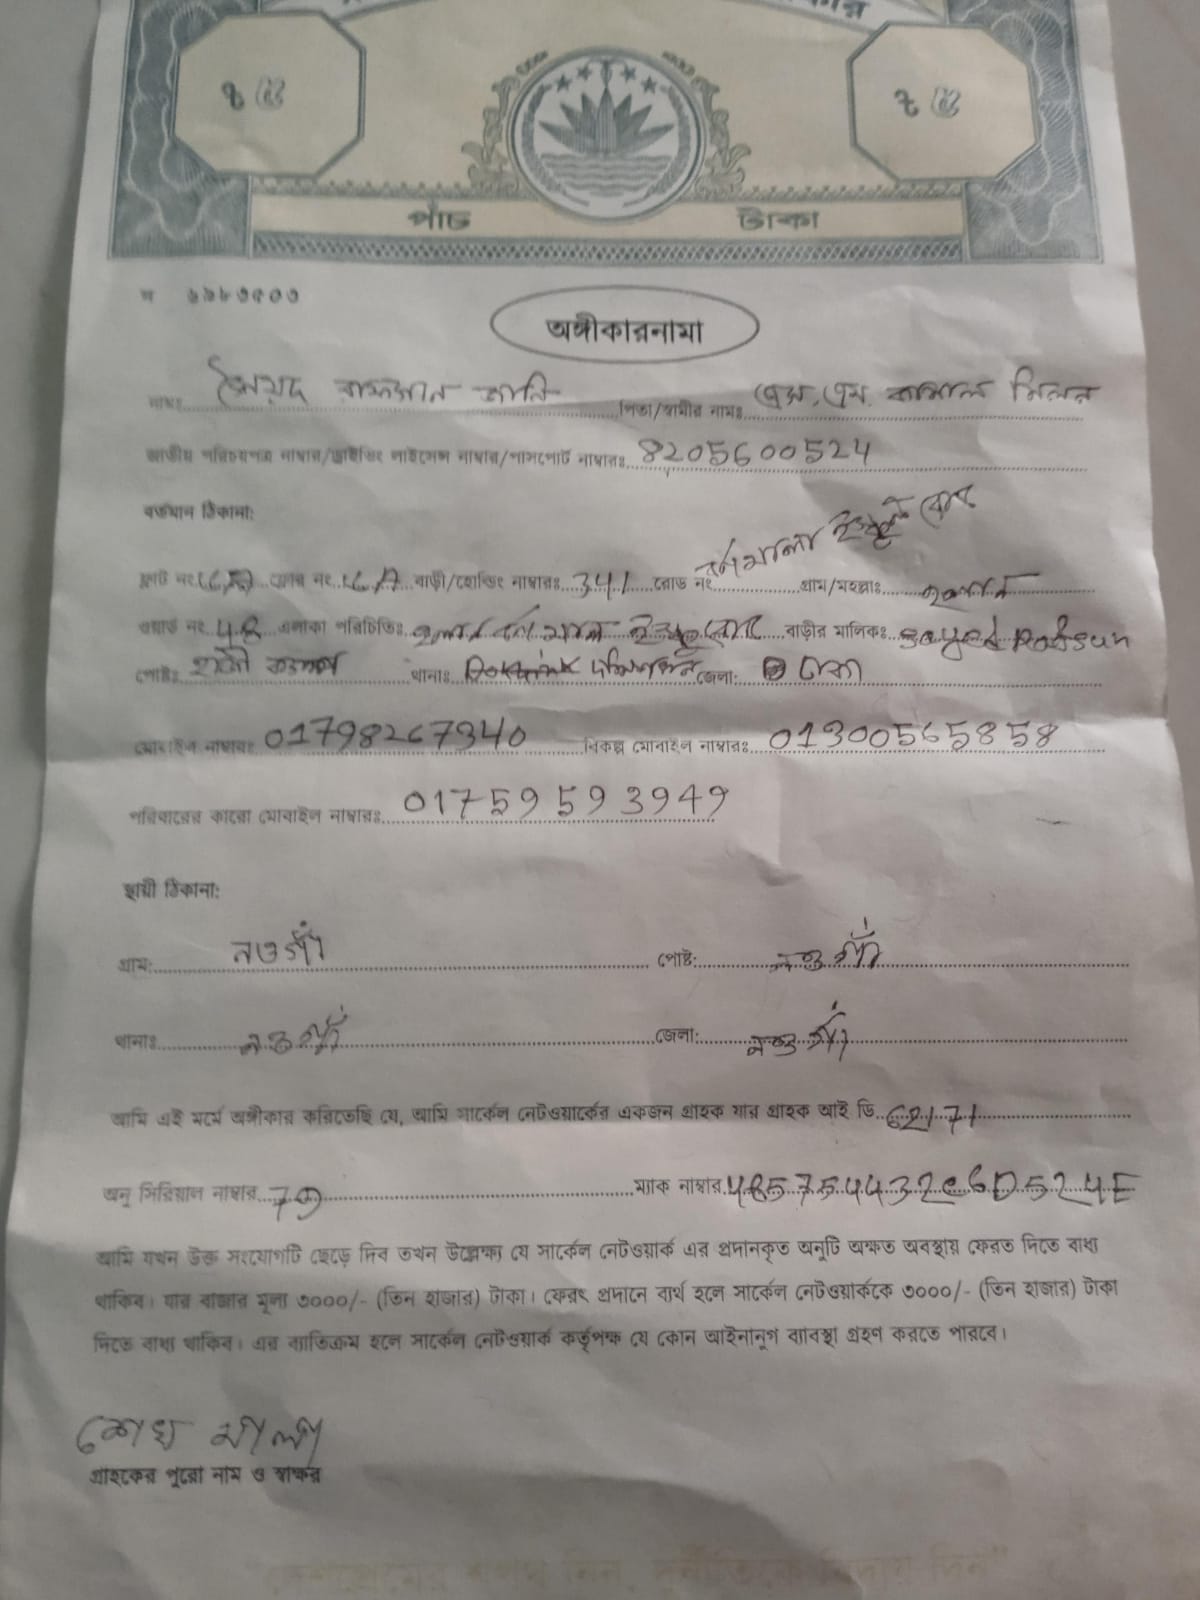 ৳ ৫ ৳ ৫
পাঁচ টাকা
প ৬৯৮৩৫০৩
অঙ্গীকারনামা
নামঃ সৈয়দ রাফসান জানি পিতা/স্বামীর নামঃ এস.এম. কামাল মিলন
জাতীয় পরিচয়পত্র নাম্বার/ড্রাইভিং লাইসেন্স নাম্বার/পাসপোর্ট নাম্বারঃ 8205600524
বর্তমান ঠিকানা:
ফ্লাট নং ফ্লোর নং বাড়ী/হোল্ডিং নাম্বারঃ 341 রোড নং বর্ণমালা ইস্কুল রোড গ্রাম/মহল্লাঃ
ওয়ার্ড নং 48 এলাকা পরিচিতিঃ বর্ণমালা ইস্কুল রোড বাড়ীর মালিকঃ Sayed Rafsun
পোষ্টঃ থানাঃ জেলা: ঢাকা
মোবাইল নাম্বারঃ 01798267340 বিকল্প মোবাইল নাম্বারঃ 01300565858
পরিবারের কারো মোবাইল নাম্বারঃ 01759593949
স্থায়ী ঠিকানা:
গ্রাম: নওগাঁ পোষ্ট: নওগাঁ
থানাঃ নওগাঁ জেলা: নওগাঁ
আমি এই মর্মে অঙ্গীকার করিতেছি যে, আমি সার্কেল নেটওয়ার্কের একজন গ্রাহক যার গ্রাহক আই ডি 62171
অনু সিরিয়াল নাম্বার ম্যাক নাম্বার 485754432C6D524E
আমি যখন উক্ত সংযোগটি ছেড়ে দিব তখন উল্লেক্ষ্য যে সার্কেল নেটওয়ার্ক এর প্রদানকৃত অনুটি অক্ষত অবস্থায় ফেরত দিতে বাধ্য
থাকিব। যার বাজার মূল্য ৩০০০/- (তিন হাজার) টাকা। ফেরৎ প্রদানে ব্যর্থ হলে সার্কেল নেটওয়ার্ককে ৩০০০/- (তিন হাজার) টাকা
দিতে বাধ্য থাকিব। এর ব্যাতিক্রম হলে সার্কেল নেটওয়ার্ক কর্তৃপক্ষ যে কোন আইনানুগ ব্যাবস্থা গ্রহণ করতে পারবে।
শেখ
গ্রাহকের পুরো নাম ও স্বাক্ষর
"দেশপ্রেমের শপথ নিন, দুর্নীতিকে বিদায় দিন"